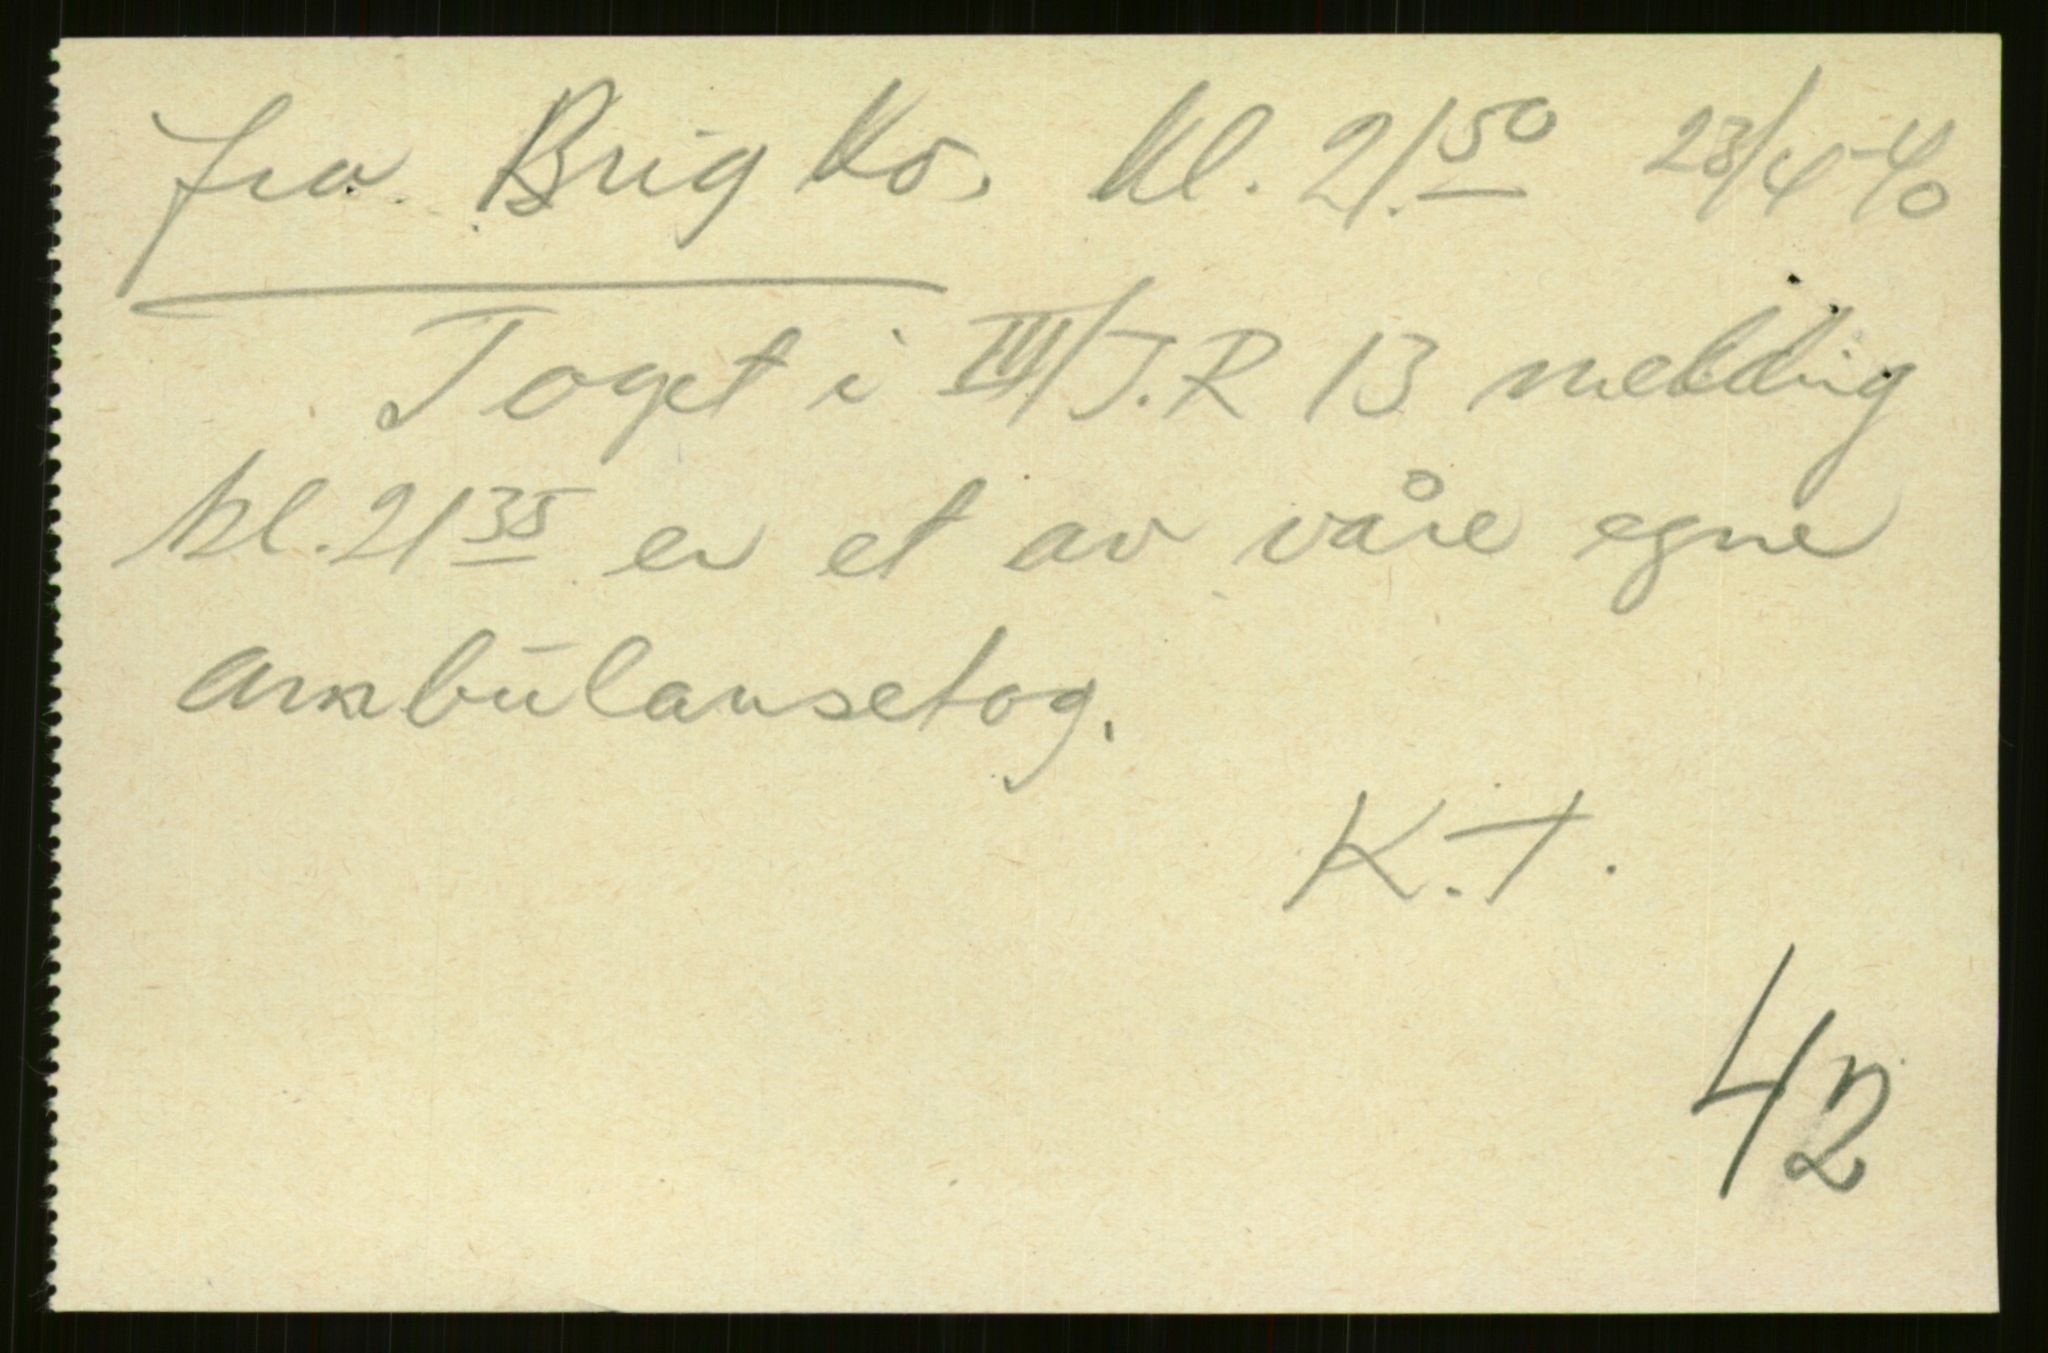 fra Brig Ko. kl. 21.50 23/4-40
Toget i III/I.R 13 melding
kl. 2135 er et av våre egne
ambulansetog.
K.T.
42